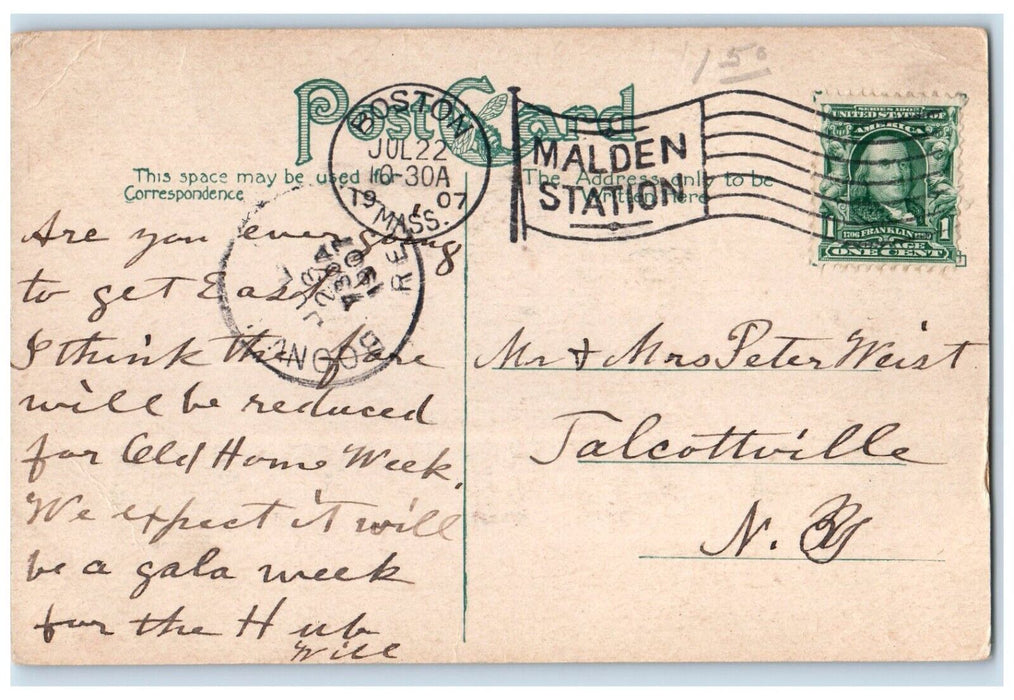 1 50
Post Card
This space may be used for
Correspondence
The Address only to be
Written Here
BOSTON
JUL 22
10-30A
1907
MASS.
MALDEN
STATION
SERIES 1902
UNITED STATES OF
AMERICA
1706 FRANKLIN
POSTAGE
1 ONE CENT 1
REC'D
Are you ever going
to get East
I think the fare
will be reduced
for Old Home Week.
We expect it will
be a gala week
for the Hub
Will
Mr & Mrs Peter Weist
Talcottville
N. Y